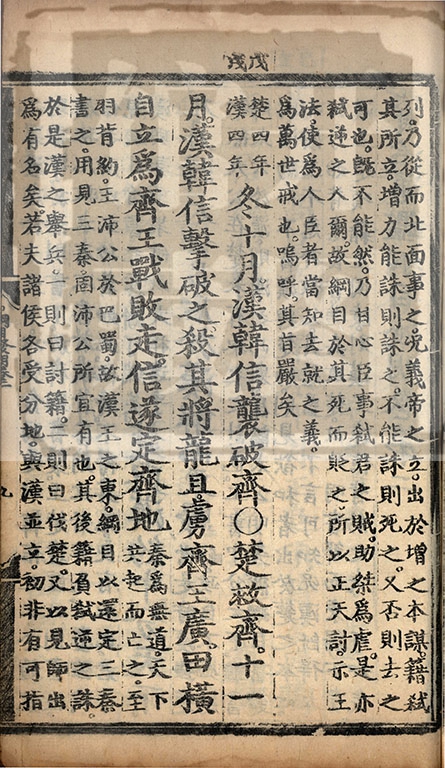 戊戌
列。乃從而北面事之。況義帝之立。出於增之本謀。籍弒
其所立。增力能誅則誅之。不能誅則死之。又否則去之
可也。既不能然。乃甘心臣事弒君之賊。助桀爲虐。是亦
弒逆之人爾。故綱目於其死而貶之。所以正天討。示王
法。使爲人臣者當知去就之義。
爲萬世戒也。嗚呼。其旨嚴矣
楚四年
漢四年
冬十月。漢韓信襲破齊〇楚救齊。十一
月。漢韓信擊破之。殺其將龍且。虜齊王廣。田橫
自立爲齊王戰敗走。信遂定齊地
秦爲無道。天下
共起而亡之。至
羽背約。王沛公於巴蜀。故漢王之東。綱目以還定三秦
書之。用見三秦。固沛公所宜有也。其後籍負弒逆之誅
於是漢之舉兵。一則曰討籍。二則曰伐楚。又以見師出
爲有名矣。若夫諸侯各受分地。與漢並立。初非有可指
九